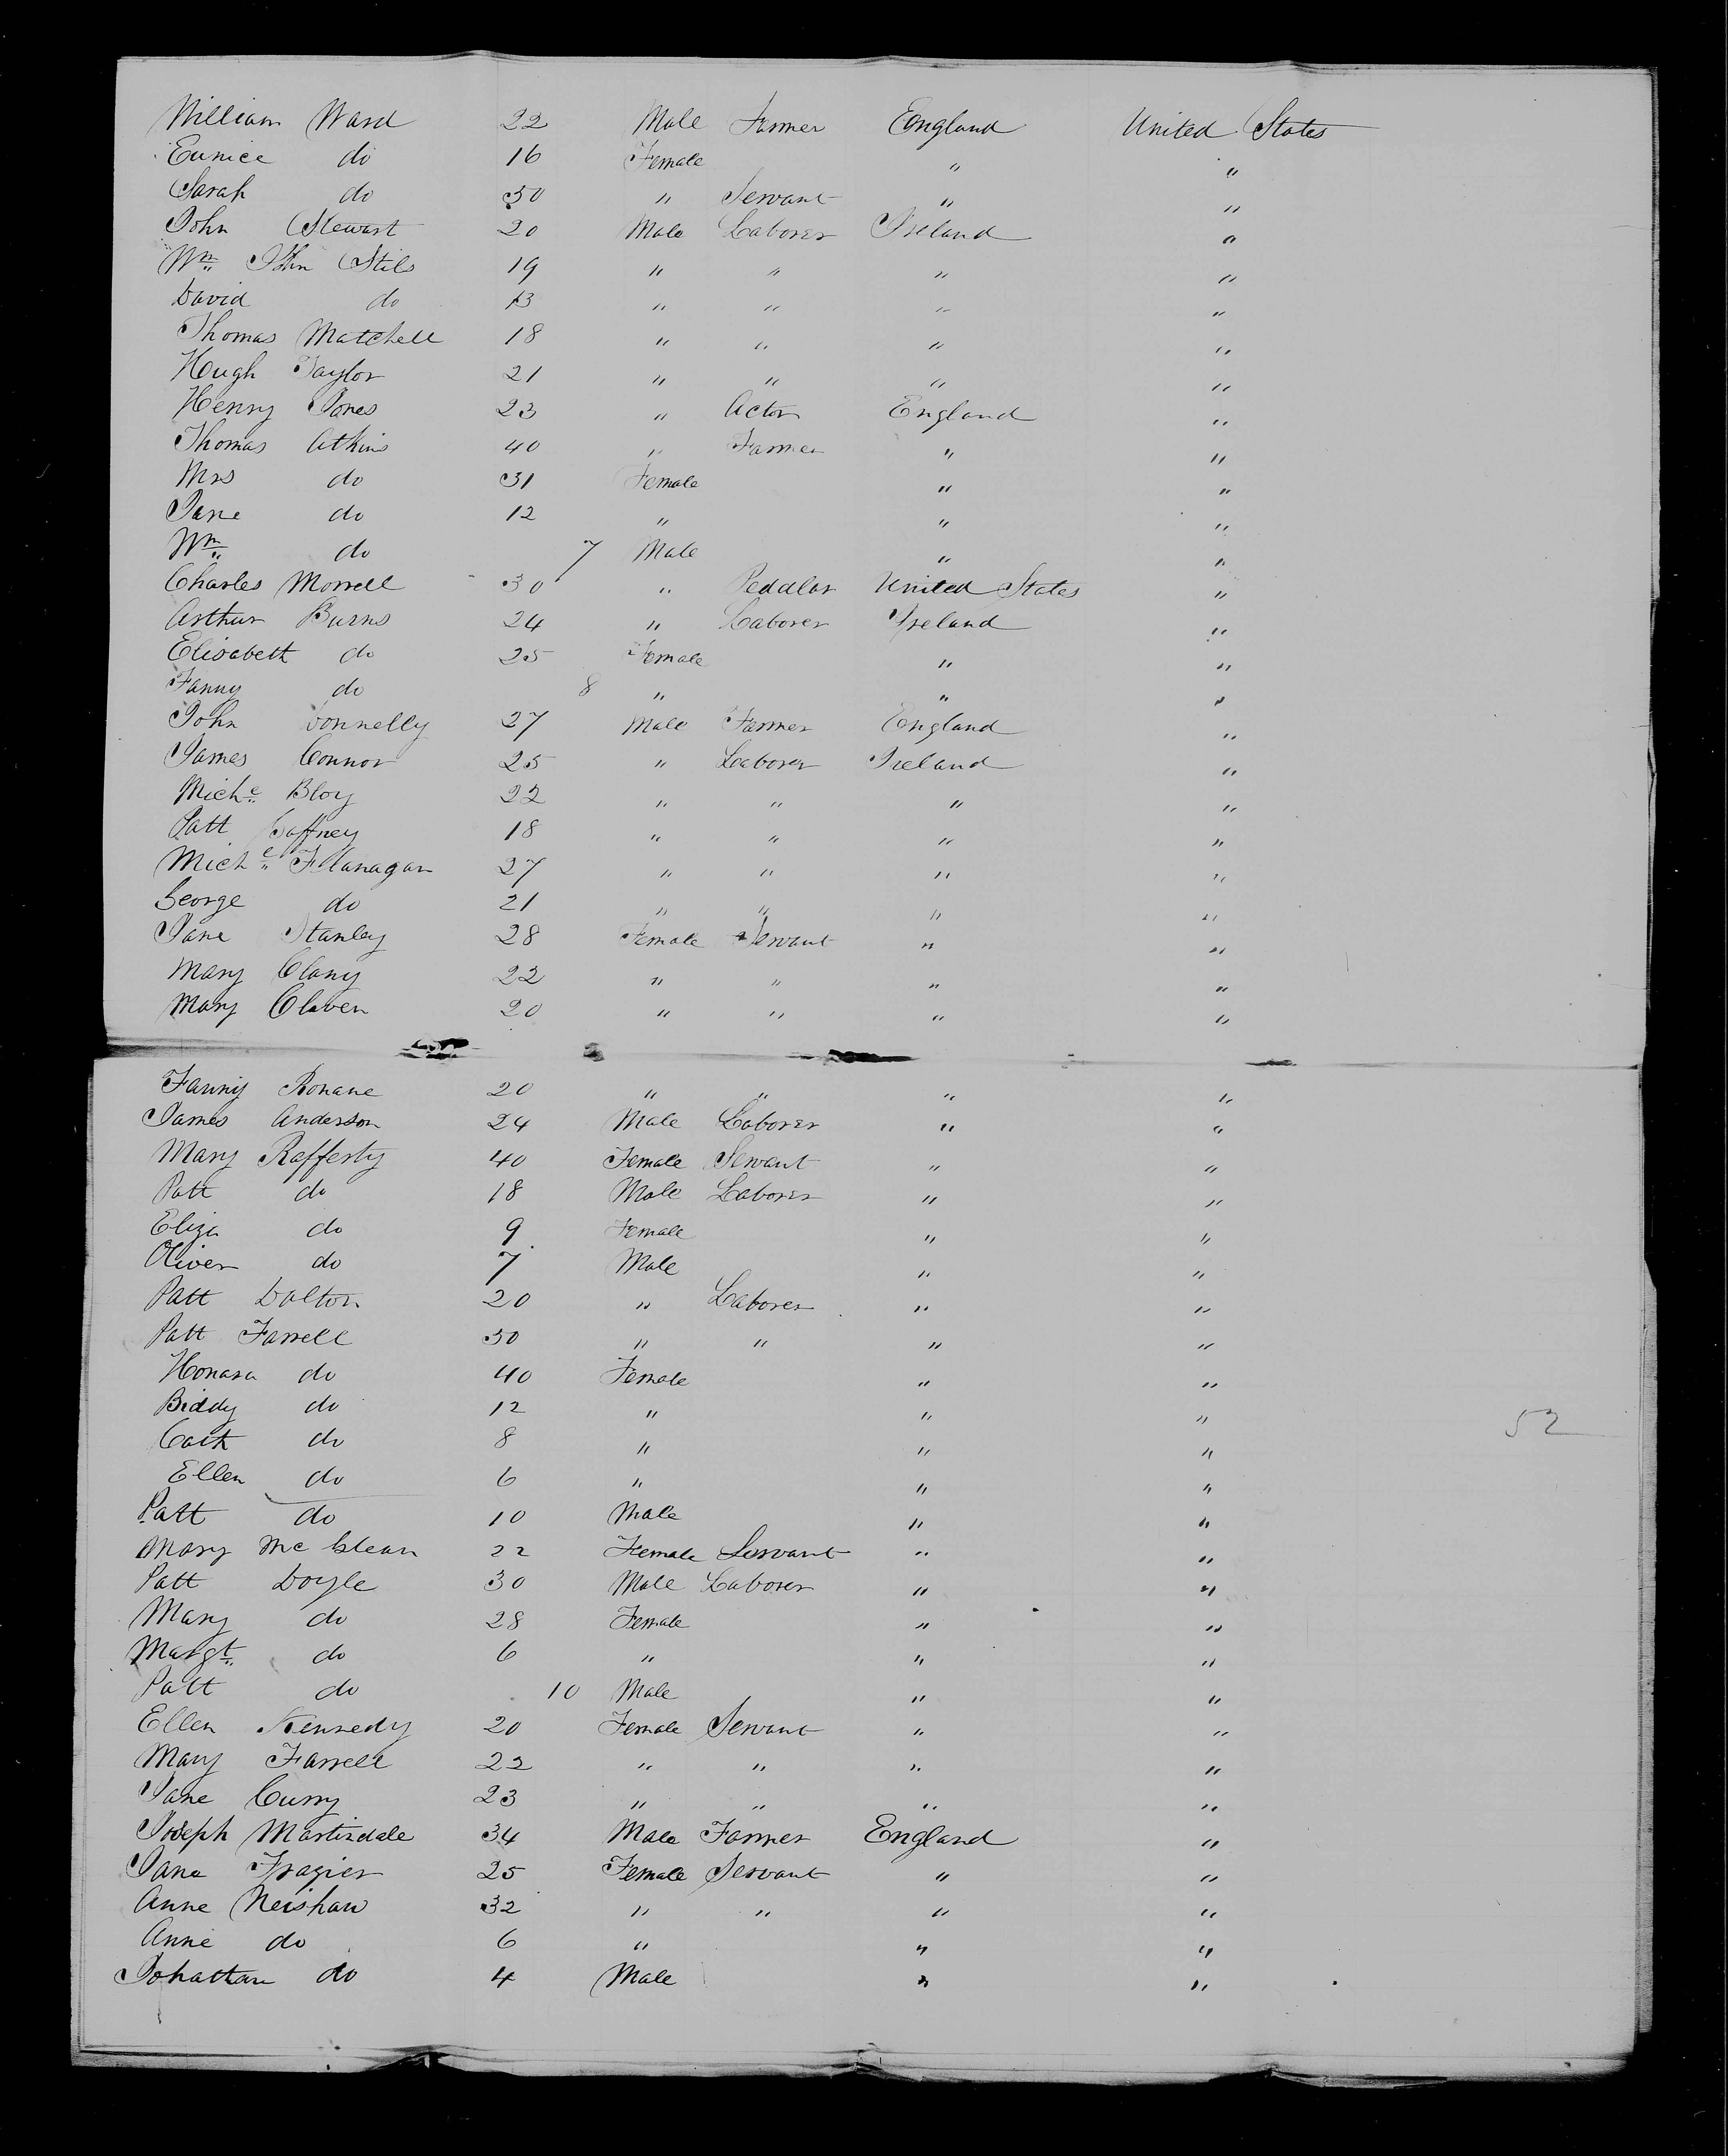 William Ward 22 Male Farmer England United States
Eunice do 16 Female " "
Sarah do 30 " Servant " "
John Stewart 20 Male Laborer Ireland "
Wm John Stils 19 " " " "
David do 13 " " " "
Thomas Matchell 18 " " " "
Hough Taylor 21 " " " "
Henry Jones 23 " Actor England "
Thomas Atkins 40 " Farmer " "
Mrs do 31 Female " "
Jane do 12 " " "
Wm do 7 Male " "
Charles Morrell 30 " Peddlar United States "
Arthur Burns 24 " Laborer Ireland "
Elisabeth do 25 Female " "
Fanny do 8 " " "
John Donnelly 27 Male Farmer England "
James Connor 25 " Laborer Ireland "
Michl Bloy 22 " " " "
Patt Gaffney 18 " " " "
Michl Flanagan 27 " " " "
George do 21 " " " "
Jane Stanley 28 Female Servant " "
Mary Clany 22 " " " "
Mary Claven 20 " " " "
Fanny Ronane 20 " " " "
James Anderson 24 Male Laborer " "
Mary Rafferty 40 Female Servant " "
Patt do 18 Male Laborer " "
Eliza do 9 Female " "
Oliver do 7 Male " "
Patt Dalton 20 " Laborer " "
Patt Farrell 30 " " " "
Honara do 40 Female " "
Biddy do 12 " " "
Cath do 8 " " "
52
Ellen do 6 " " "
Patt do 10 Male " "
Mary Mc 22 Female Servant " "
Patt Doyle 30 Male Laborer " "
Mary do 28 Female " "
Margt do 6 " " "
Patt do 10 Male " "
Ellen Kennedy 20 Female Servant " "
Mary Farrell 22 " " " "
Jane Curry 23 " " " "
Joseph Martindale 34 Male Farmer England "
Jane Frazier 25 Female Servant " "
Anne Neishaw 32 " " " "
Anne do 6 " " "
Johathan do 4 Male " "